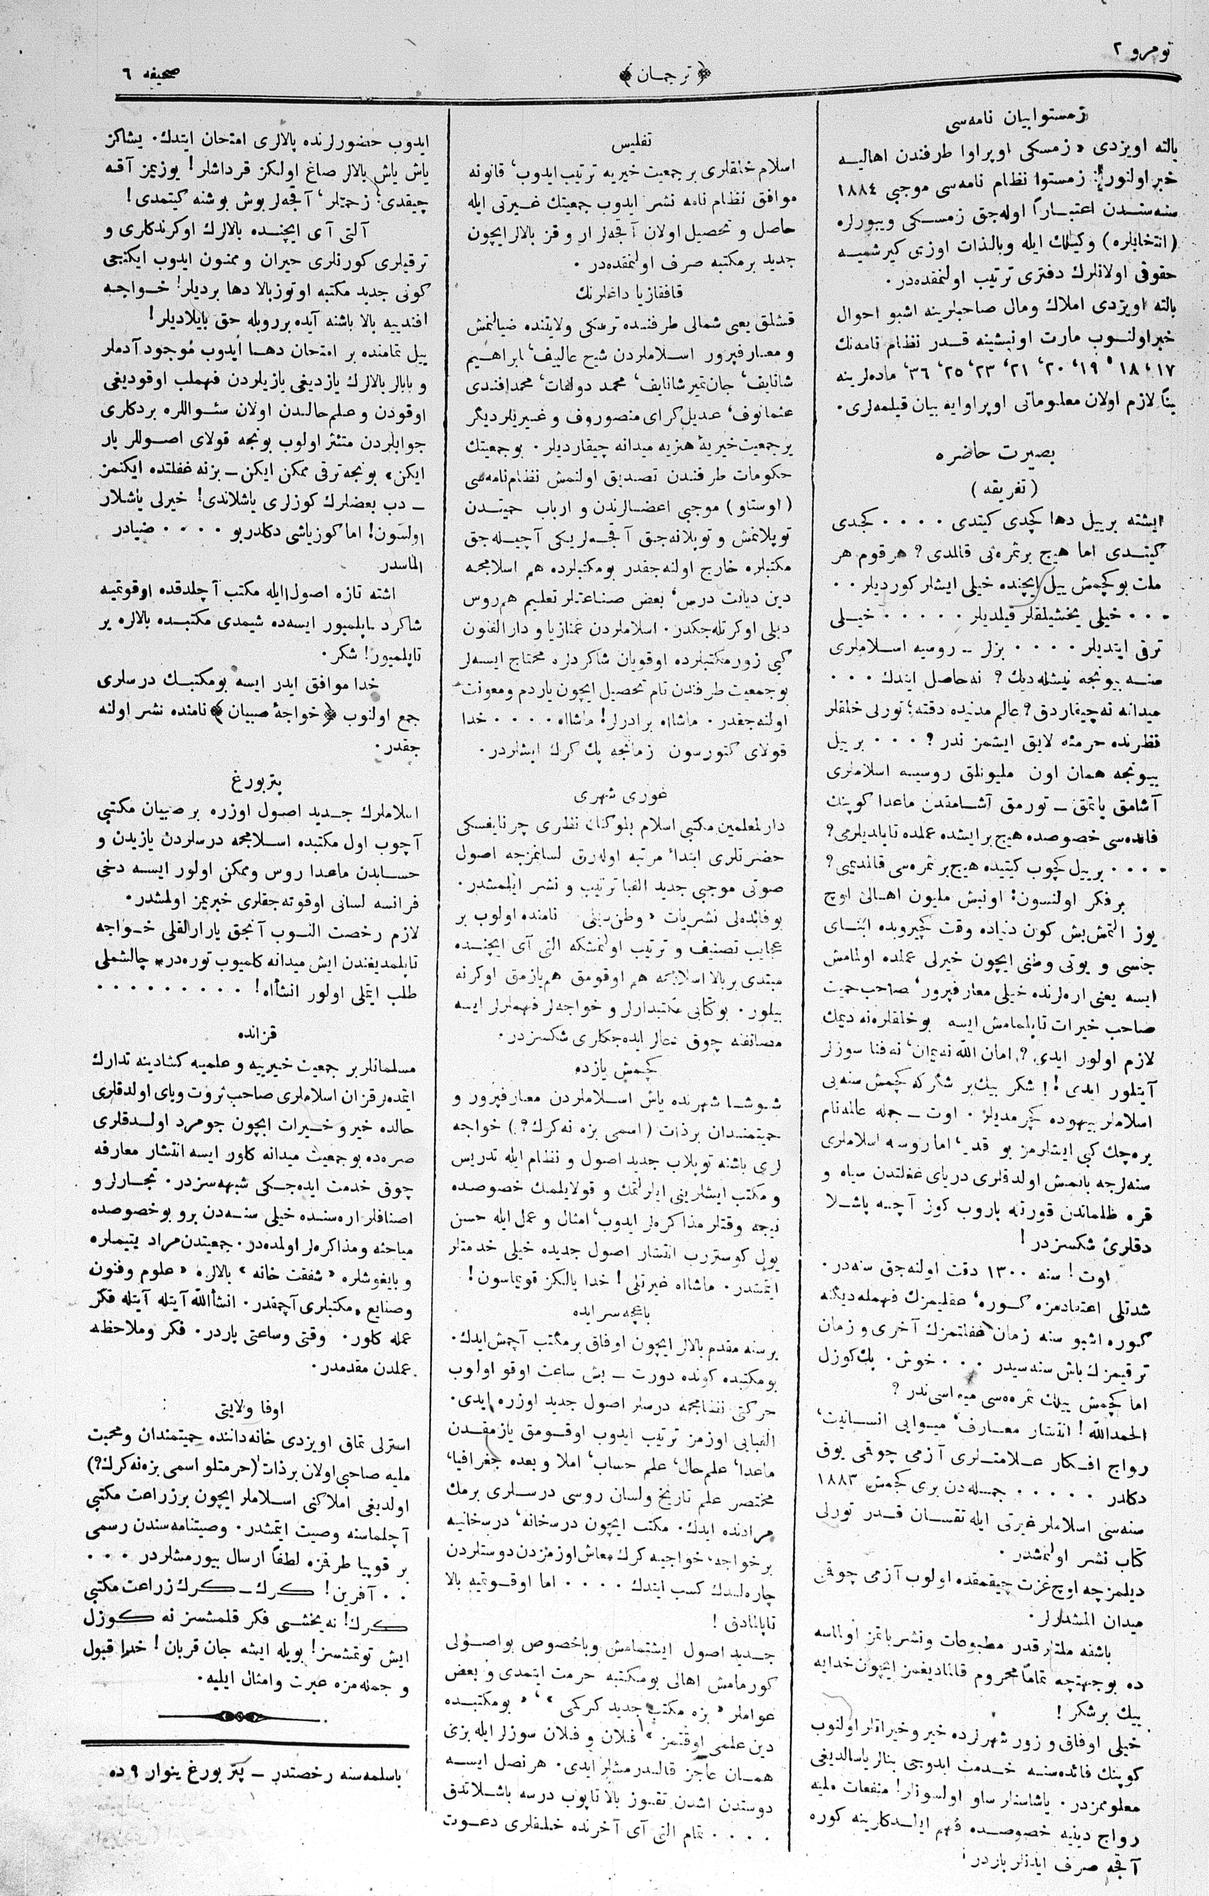 نومرو ٢
﴿ ترجمان ﴾
صحیفه ٦
زمستوا بیان نامه‌سی
یالته اویزدی « زمسكی اوپراوا طرفندن اهالیـه
خبر اولنور: زمستوا نظام نامه‌سی موجبی ١٨٨٤
سنه‌سندن اعتباراً اوله‌جق زمسكی ویبورلره
(انتخابلره) وكیللك ایله وبالذات اوزی كیرشمیـه
حقوقی اولانلرك دفتری ترتیب اولنمقده‌در.
یالته اویزدی املاك ومال صاحبلرینه اشبو احوال
خبر اولنـوب مارت اونبشینه قـدر نظام نامه‌نك
١٧، ١٨، ١٩، ٢٠، ٢١، ٢٣، ٢٥، ٣٦، ماده‌لرینه
بنأ لازم اولان معلوماتی اوپراوایه بیان قیلمه‌لری.
بصیرت حاضره
( تفریقه )
ایشته بر ییل دها كچدی كیتدی . . . . كچدی
كیتـدی اما هیچ بر ثمره‌ئی قالمدی؟ هر قوم هر
ملت بو كچمش ییل ایچنده خیلی ایشلر كوردیلر . .
. . . خیلی یخشیلقلر قیلدیلر . . . . . خیـلی
ترقی ایتدیلر . . . . بزلر ــ روسیه اسـلاملری
سنـه بیونجه نیشله‌دیك؟ نه حاصل ایتدك . . .
میدانه نه چیقاردق؟ عالم مدنیده دقته؛ تورلی خلقلر
نظرنده حرمته لایق ایشمز ندر؟ . . . بر ییل
بیونجه همان اون ملیونلق روسیـه اسلاملری
آشامق یاتمق ــ تورمق آشـامقدن ماعدا كوپنك
فائده‌سی خصوصده هیچ بر ایشده عملده تاپلدیلرمی؟
. . . . بر ییل كچوب كیتیده هیچ بر ثمره‌سی قالمدیمی؟
بر فكر اولنسون: اونبش ملیون اهـالی اوچ
یوز التمش بش كون دنیاده وقت كچیروبده ابنـای
جنسی و یوتی وطنی ایچون خیرلی عملده اولمامش
ایسه یعنی اره‌لرنده خیلی معارفپرور، صاحب حمیت
صاحب خیرات تاپلمامش ایسه بو خلقلره نه دیمك
لازم اولور ایدی؟, امان الله نه یمان، نه فنا سوزلر
آیتلور ایدی!! شكر بیك بر شكر كه كچمش سنه‌یی
اسلاملر بیهوده كچرمدیلر. اوت ــ جمله عالمه نام
بره‌جك كبی ایشلرمز یوقدر، اما روسیه اسلاملری
سنه‌لرجه یاتمش اولدقلری دریای غفلتدن سیاه و
قره ظلماتدن قورتـه یاروب كوز آچـه باشـلا
دقلری شكسزدر!
اوت! سنه ١٣٠٠ دقت اولنه‌جق سنه‌در.
شدتلی اعتقادمزه كـوره، عقلیمزك فهمله دیكنه
كـوره اشبو سنه زمان غفلتمزك آخری و زمان
ترقیمزك باش سنه‌سیدر . . . خوش. پك كوزل
اما كچمش ییلك ثمره‌سی میوه‌سی ندر؟
الحمدالله! انتشار معـارف، میـوایی انسـانیت،
رواج افـكار عـلامتـلری آزمی چوقمی یوق
دكلدر . . . . . جمله‌دن بری كچمش ١٨٨٣
سنه‌سی اسلاملر غیرتی ایله تقسـان قـدر تورلی
كتاب نشر اولنمشدر.
دیلمزجه اوچ غزت چیقمقده اولوب آزمی چوقمی
میدان المشدرلر.
باشقه ملتلر قدر مطبوعات ونشر یاتمز اولماسه
ده بوجهتچه تماماً محروم قالمادیغمز ایچون خدایه
بیك بر شكر!
خیلی اوفاق و زور شهرلرده خیر وخیراتلر اولنوب
كوپنك فائده‌سنـه خـدمت ایدوجی بنالر یاسالدیغی
معلوممزدر. یاشاسنلر ساو اولسونلر! منفعات ملیه
رواج دینیه خصوصـده فهم ایلـدكلرینه كوره
آقچه صرف ایدنلر باردر!
تفلیس
اسلام خلقلری بر جمعیت خیریه ترتیب ایدوب، قانونه
موافق نظام نامه نشر ایدوب جمعیتك غیرتی ایله
حاصل و تحصیل اولان آقچه‌لر ار و قز بالالر ایچون
جدید بر مكتبه صرف اولنمقده‌در.
قافقازیا داغلرنك
قشلق یعی شمالی طرفنـده ترسكی ولایتنده ضیالنمش
و معـارفپرور اسـلاملردن شیخ عالییف، ابراهیـم
شانایف، جان‌تمیر شانایف، محمد دولغات، محمد افندی
عثمانوف، عدیل‌كرای منصوروف و غیریلر دیگر
بر جمعیت خیریهٔ هنزیه میدانه چیقاردیلر. بوجمعیتك
حكومات طرفنـدن تصـدیق اولنمش نظام نامه‌سی
(اوستاو) موجبی اعضـالرندن و ارباب حمیتـدن
توپلانمش و توپلانه‌جـق آقچـه‌لر یكی آچیـله‌جق
مكتبلره خارج اولنه‌جقدر بومكتبلرده هم اسلامجه
دین دیانت درس، بعض صنـاعتلر تعلیم هم روس
دیلی اوكرتله‌جكدر. اسلاملردن غمنازیا و دارالفنون
كبی زور مكتبلرده اوقویان شاكردلره محتاج ایسه‌لر
بوجمعیت طرفندن تام تحصیل ایچون یاردم ومعونت
اولنه‌جقدر. ماشااه برادرلر! ماشااه . . . . خدا
قولای كتورسون زمانجه پك كرك ایشلردر.
غوری شهری
دارلمعلمین مكتبی اسلام بلوكنك نظری چرنایفسكی
حضرتلری ابتداء مرتبه اوله‌رق لسانمزجه اصول
صوتی موجبی جدید الفبا ترتیب و نشر ایلمشدر.
بوفائده‌لی نشریات « وطن دیلی » نامنده اولوب بر
عجایب تصنیف و ترتیب اولنمشكه التی آی ایچنـده
مبتدی بر بالا اسلامجه هم اوقومق هم یازمق اوكرنه
بیلور. بوكتابی مكتبدارلر و خواجه‌لر فهملرلر ایسه
مصانفنه چوق تشكر ایده‌جكلری شكسزدر.
كچمش یازده
شـوشـا شهرنده یاش اسـلاملردن معارفپرور و
حمیتمنـدان بر ذات (اسمی بزه نه كرك؟) خواجه
لری باشنه توپلاب جدید اصول و نظام ایله تدریس
و مكتب ایشلرینی ایلرلتمك و قولایلمك خصوصـده
نیجه وقتلر مذاكره‌لر ایدوب، امثال و عمل ایله حسن
یول كوستروب انتشار اصول جدیده خیلی خدمتلر
ایتمشدر. ماشااه غیرتلی! خدا یالكز قویماسون!
باغچه سرایده
بر سنه مقدم بالالر ایچون اوفاق بر مكتب آچمش ایدك.
بومكتبده كونده دورت ــ بش ساعت اوقو اولوب
حركتی نظامجه درسلر اصول جدید اوزره ایدی.
الفبایی اوزمز ترتیب ایدوب اوقـومق یازمقـدن
ماعدا، علم حال، علم حساب، املا و بعده جغرافیا،
مختصر علم تاریخ ولسان روسی درسـلری برمك
مرادنده ایدك. مكتب ایچون درسخانه، درسخانیه
بر خواجه، خواجیه كرك معاش اوزمزدن دوستلردن
چاره‌لیدك كسب ایتدك . . . . اما اوقـوتمیه بالا
تاپالمادق!
جـدید اصول ایشتمامش وباخصوص بواصـولی
كورمامش اهالی بومكتبه حرمت ایتمدی و بعض
عواملر « بزه مكتب جدید كركمی »، « بومكتبـده
دین علمی اوقتمز » فـلان و فـلان سوزلر ایله بزی
همـان عاجز قالدرمشلر ایدی. هر نصل ایسـه
دوستدن اشدن تقـوز بالا تاپوب درسه باشـلاتدق
. . . . تمام التی آی آخرنده خلقلری دعـوت
ایدوب حضورلرنده بالالری امتحان ایتدك. یشاكز
یاش یاش بالالر صاغ اولكز قرداشلر! یوزیمز آقـه
چیقدی؛ زحمتلر، آقچه‌لر بوش بوشنه كیتمدی!
آلتی آی ایچنـده بالالرك اوكرندكلری و
ترقیلری كورنلری حیران و ممنون ایدوب ایكنجی
كونی جدید مكتبه اوتوز بالا دها بردیلر! خـواجـه
افندییه بالا باشنه آیده بر روبله حق بایلادیلر!
ییل تمامنده بر امتحان دهـا ایدوب موجود آدملر
و بابالر بالالرك یازدیغی یازیلردن فهملب اوقودیغی
اوقودن و علم حالـدن اولان سئـواللره بردكلری
جوابلردن متشر اولوب بونجه قولای اصـوللر بار
ایكن، بونجه ترقی ممكن ایكن ــ بزنه غفلتده ایكنمز
ــ دب بعضلرك كوزلری یاشلاندی! خیرلی یاشلار
اولسون! اما كوز یاشی دكلدر بو . . . . ضیادر
الماسدر
اشته تازه اصول ایله مكتب آچلدقده اوقوتمیه
شاكرد تاپلمیور ایسه‌ده شیمدی مكتبـده بالالره یر
تاپلمیور! شكر.
خدا موافق ایدر ایسه بومكتبـك درسلری
جمع اولنوب ﴿خواجهٔ صبیان﴾ نامنده نشر اولنه
جقدر.
پتربورغ
اسلاملرك جـدید اصول اوزره بر صبیان مكتبی
آچوب اول مكتبـده اسـلامجه درسلردن یازیدن و
حسـابدن ماعدا روس وممكن اولور ایسـه دخی
فرانسه لسانی اوقوته‌جقلری خبریمز اولمشدر.
لازم رخصت النـوب آنجق یارارالقلی خـواجه
تاپلمدیغندن ایش میدانه كلمیوب توره‌در، چالشملی
طلب ایتملی اولور انشااه! . . . . . . . . .
قزانده
مسلمانلر بر جمعیت خیرییه و علمیه كشادینه تدارك
ایتمده‌لر قزان اسلاملری صاحب ثروت وبای اولدقلری
حالده خیر و خـیرات ایچون جومرد اولـدقلری
صره‌ده بوجمعیت میدانه كلور ایسه انتشار معارفه
چوق خدمت ایده‌جـكی شبهه سزدر. تجـارلر و
اصنافلر اره‌سنـده خیلی سنـه‌دن برو بوخصوصده
مباحثه و مذاكره‌لر اولمده‌در. جمعیتدن مراد یتیملره
و بایغوشلره « شفقت خانه » بالالره « علوم وفنون
وصنایع » مكتبلری آچمقدر. انشأالله آیتله آیتله فكر
عمله كلور. وقتی وساعتی باردر. فكر وملاحظه
عملدن مقدمدر.
اوفا ولایتی
استرلی تماق اویزدی خانه‌داننده حمیتمندان ومحبت
ملیه صاحبی اولان بر ذات (حرمتلو اسمی بزه نه كرك؟)
اولدیغی املاكنی اسـلاملر ایچون بر زراعت مكتبی
آچلماسنه وصیت ایتمشدر. وصیتنامه‌سندن رسمی
بر قوپیا طرفمزه لطفاً ارسال بیورمشلردر . . .
. . آفرین! كـرك ــ كـرك زراعت مكتبی
كـرك! نه یخشـی فكر قلمشسز نه كـوزل
ایش توتمشسز! بویله ایشه جان قربان! خدا قبول
و جمله‌مزه عبرت وامثال ایلیه.
باسلمه‌سنه رخصتدر ــ پتر بورغ ینوار ٩ ده